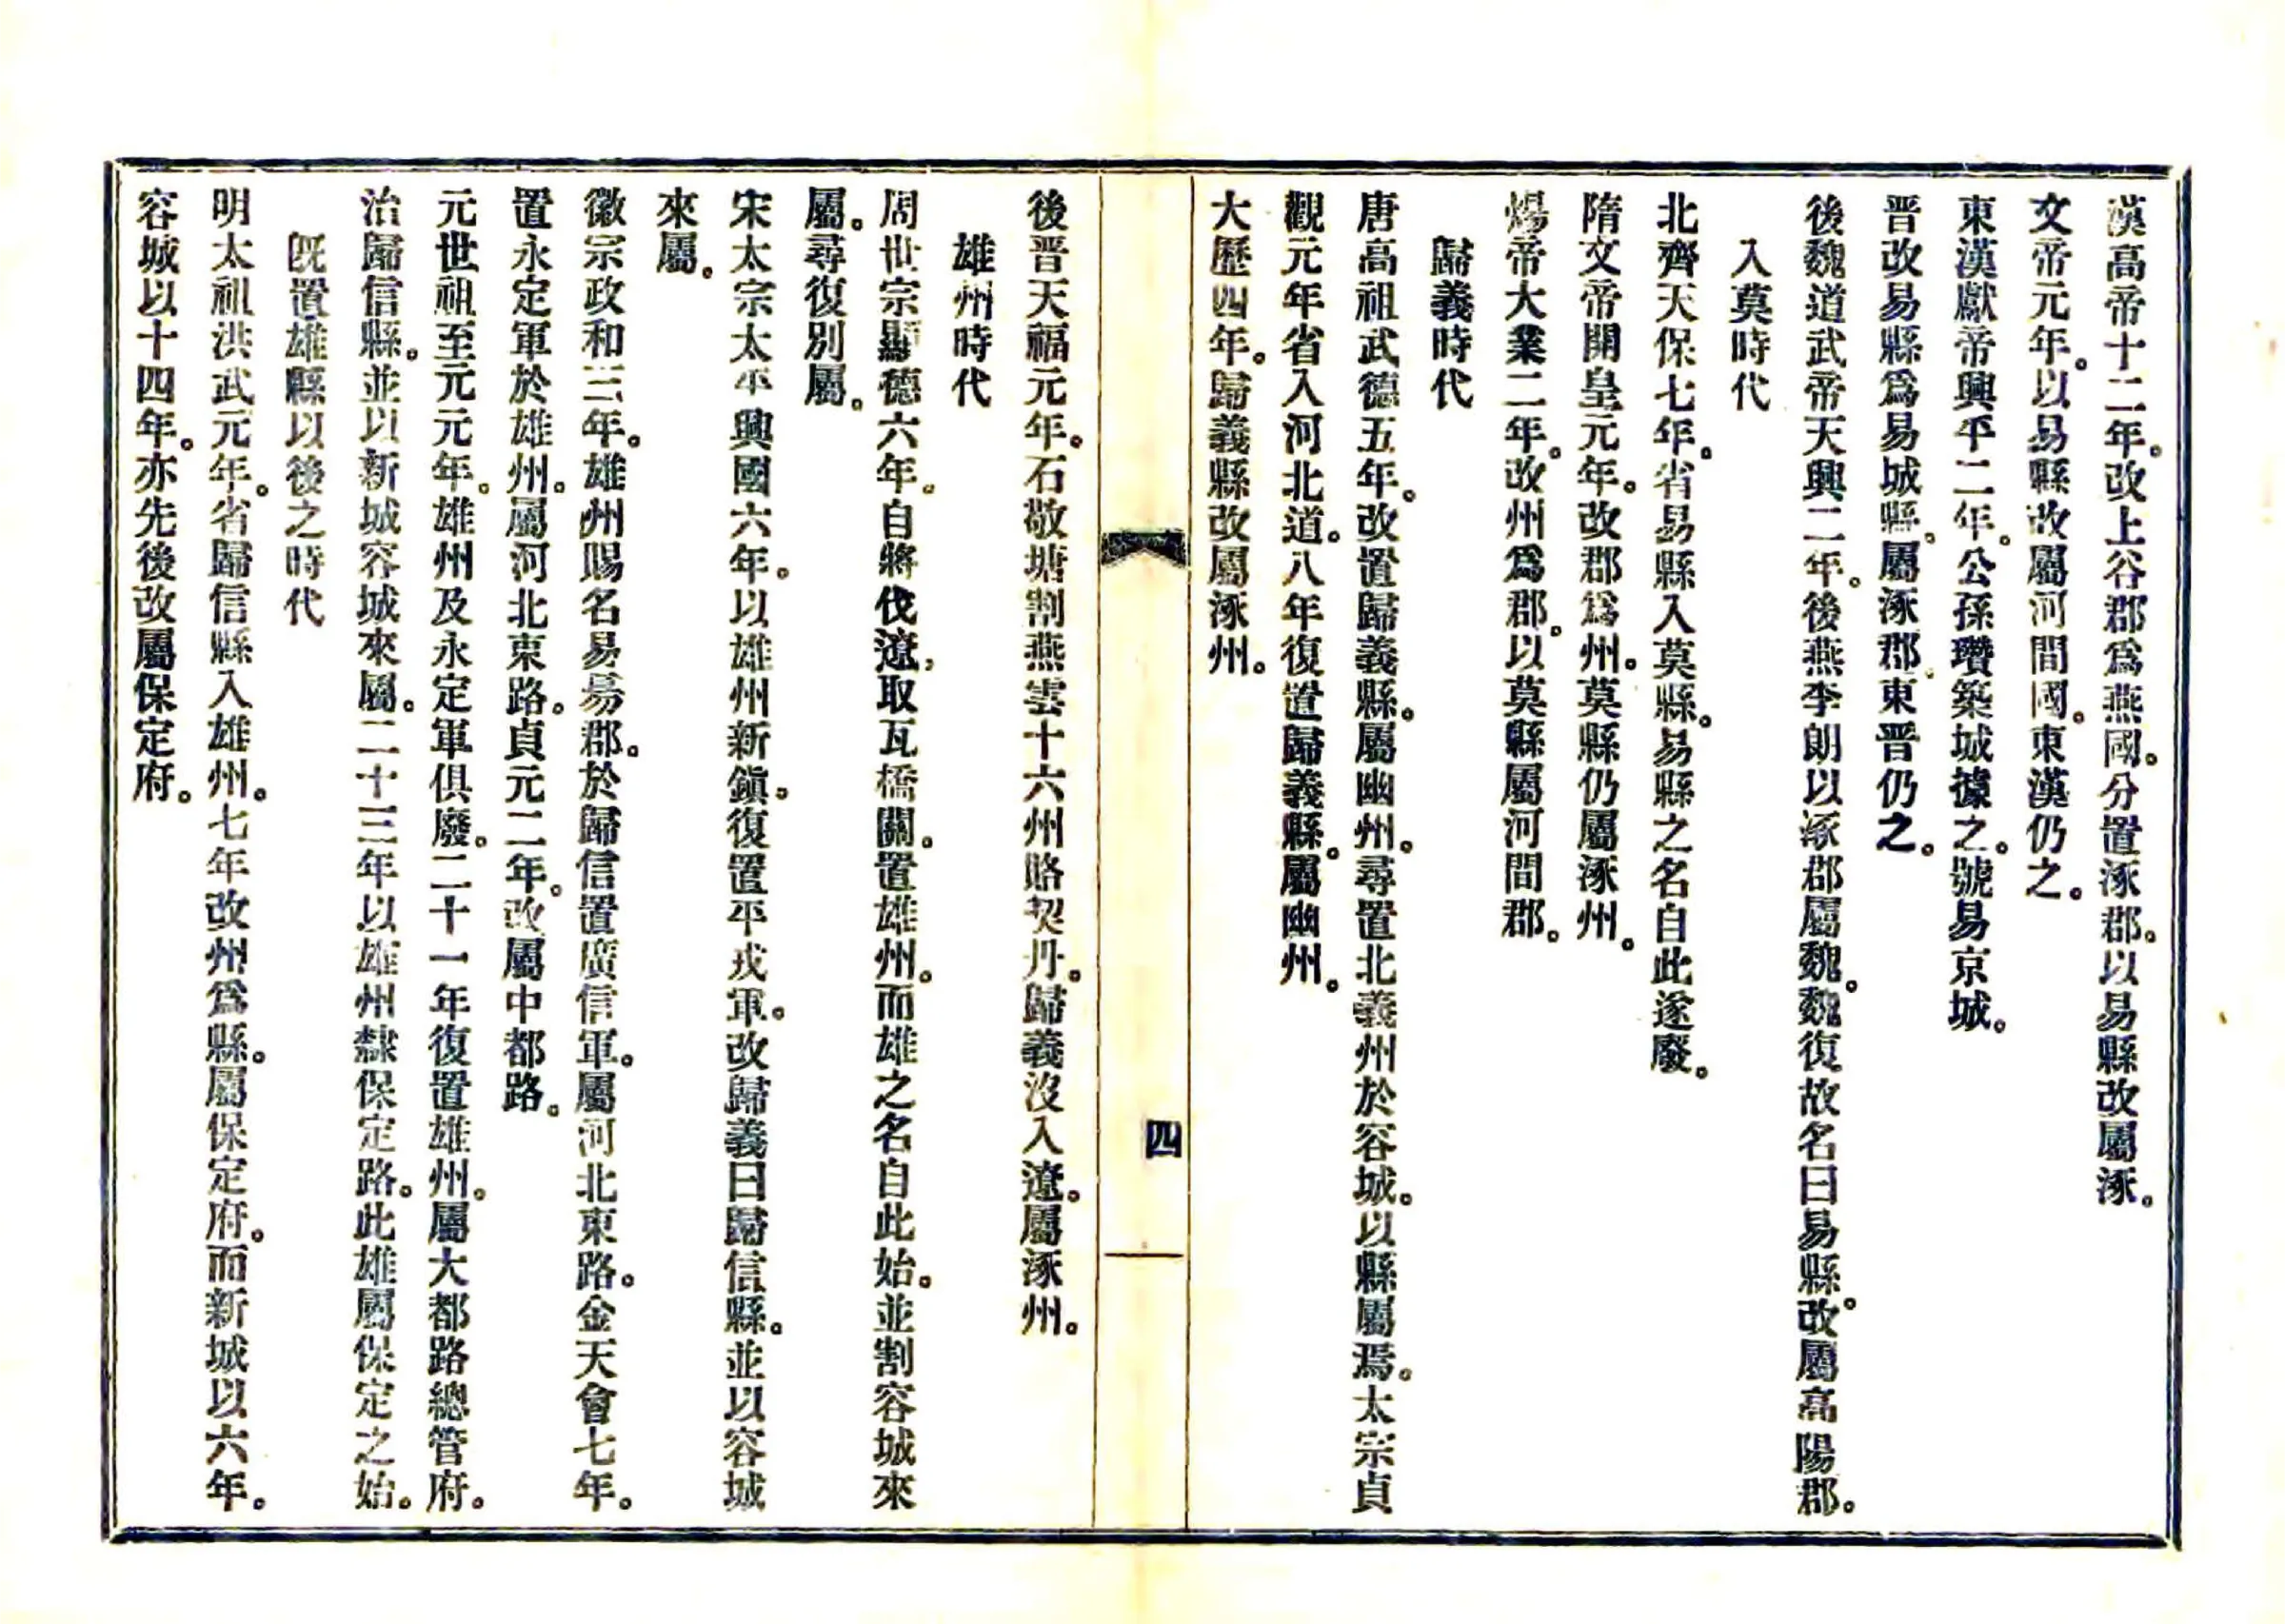 漢高帝十二年。改上谷郡爲燕國。分置涿郡。以易縣改屬涿。
文帝元年。以易縣改屬河間國。東漢仍之。
東漢獻帝興平二年。公孫瓚築城據之。號易京城。
晋改易縣爲易城縣。屬涿郡。東晋仍之。
後魏道武帝天興二年。後燕李朗以涿郡屬魏。魏復故名曰易縣。改屬高陽郡。
入莫時代
北齊天保七年。省易縣入莫縣。易縣之名自此遂廢。
隋文帝開皇元年。改郡爲州。莫縣仍屬涿州。
煬帝大業二年。改州爲郡。以莫縣屬河間郡。
歸義時代
唐高祖武德五年。改置歸義縣。屬幽州。尋置北義州於容城。以縣屬焉。太宗貞
觀元年省入河北道。八年復置歸義縣。屬幽州。
大歷四年。歸義縣改屬涿州。
四
後晋天福元年。石敬塘割燕雲十六州賂契丹。歸義沒入遼。屬涿州。
雄州時代
周世宗顯德六年。自將伐遼，取瓦橋關。置雄州。而雄之名自此始。並割容城來
屬。尋復別屬。
宋太宗太平興國六年。以雄州新鎭。復置平戎軍。改歸義曰歸信縣。並以容城
來屬。
徽宗政和三年。雄州賜名易昜郡。於歸信置廣信軍。屬河北東路。金天會七年。
置永定軍於雄州。屬河北東路。貞元二年。改屬中都路。
元世祖至元元年。雄州及永定軍俱廢。二十一年復置雄州。屬大都路總管府。
治歸信縣。並以新城容城來屬。二十三年以雄州隸保定路。此雄屬保定之始。
旣置雄縣以後之時代
明太祖洪武元年。省歸信縣入雄州。七年改州爲縣。屬保定府。而新城以六年。
容城以十四年。亦先後改屬保定府。